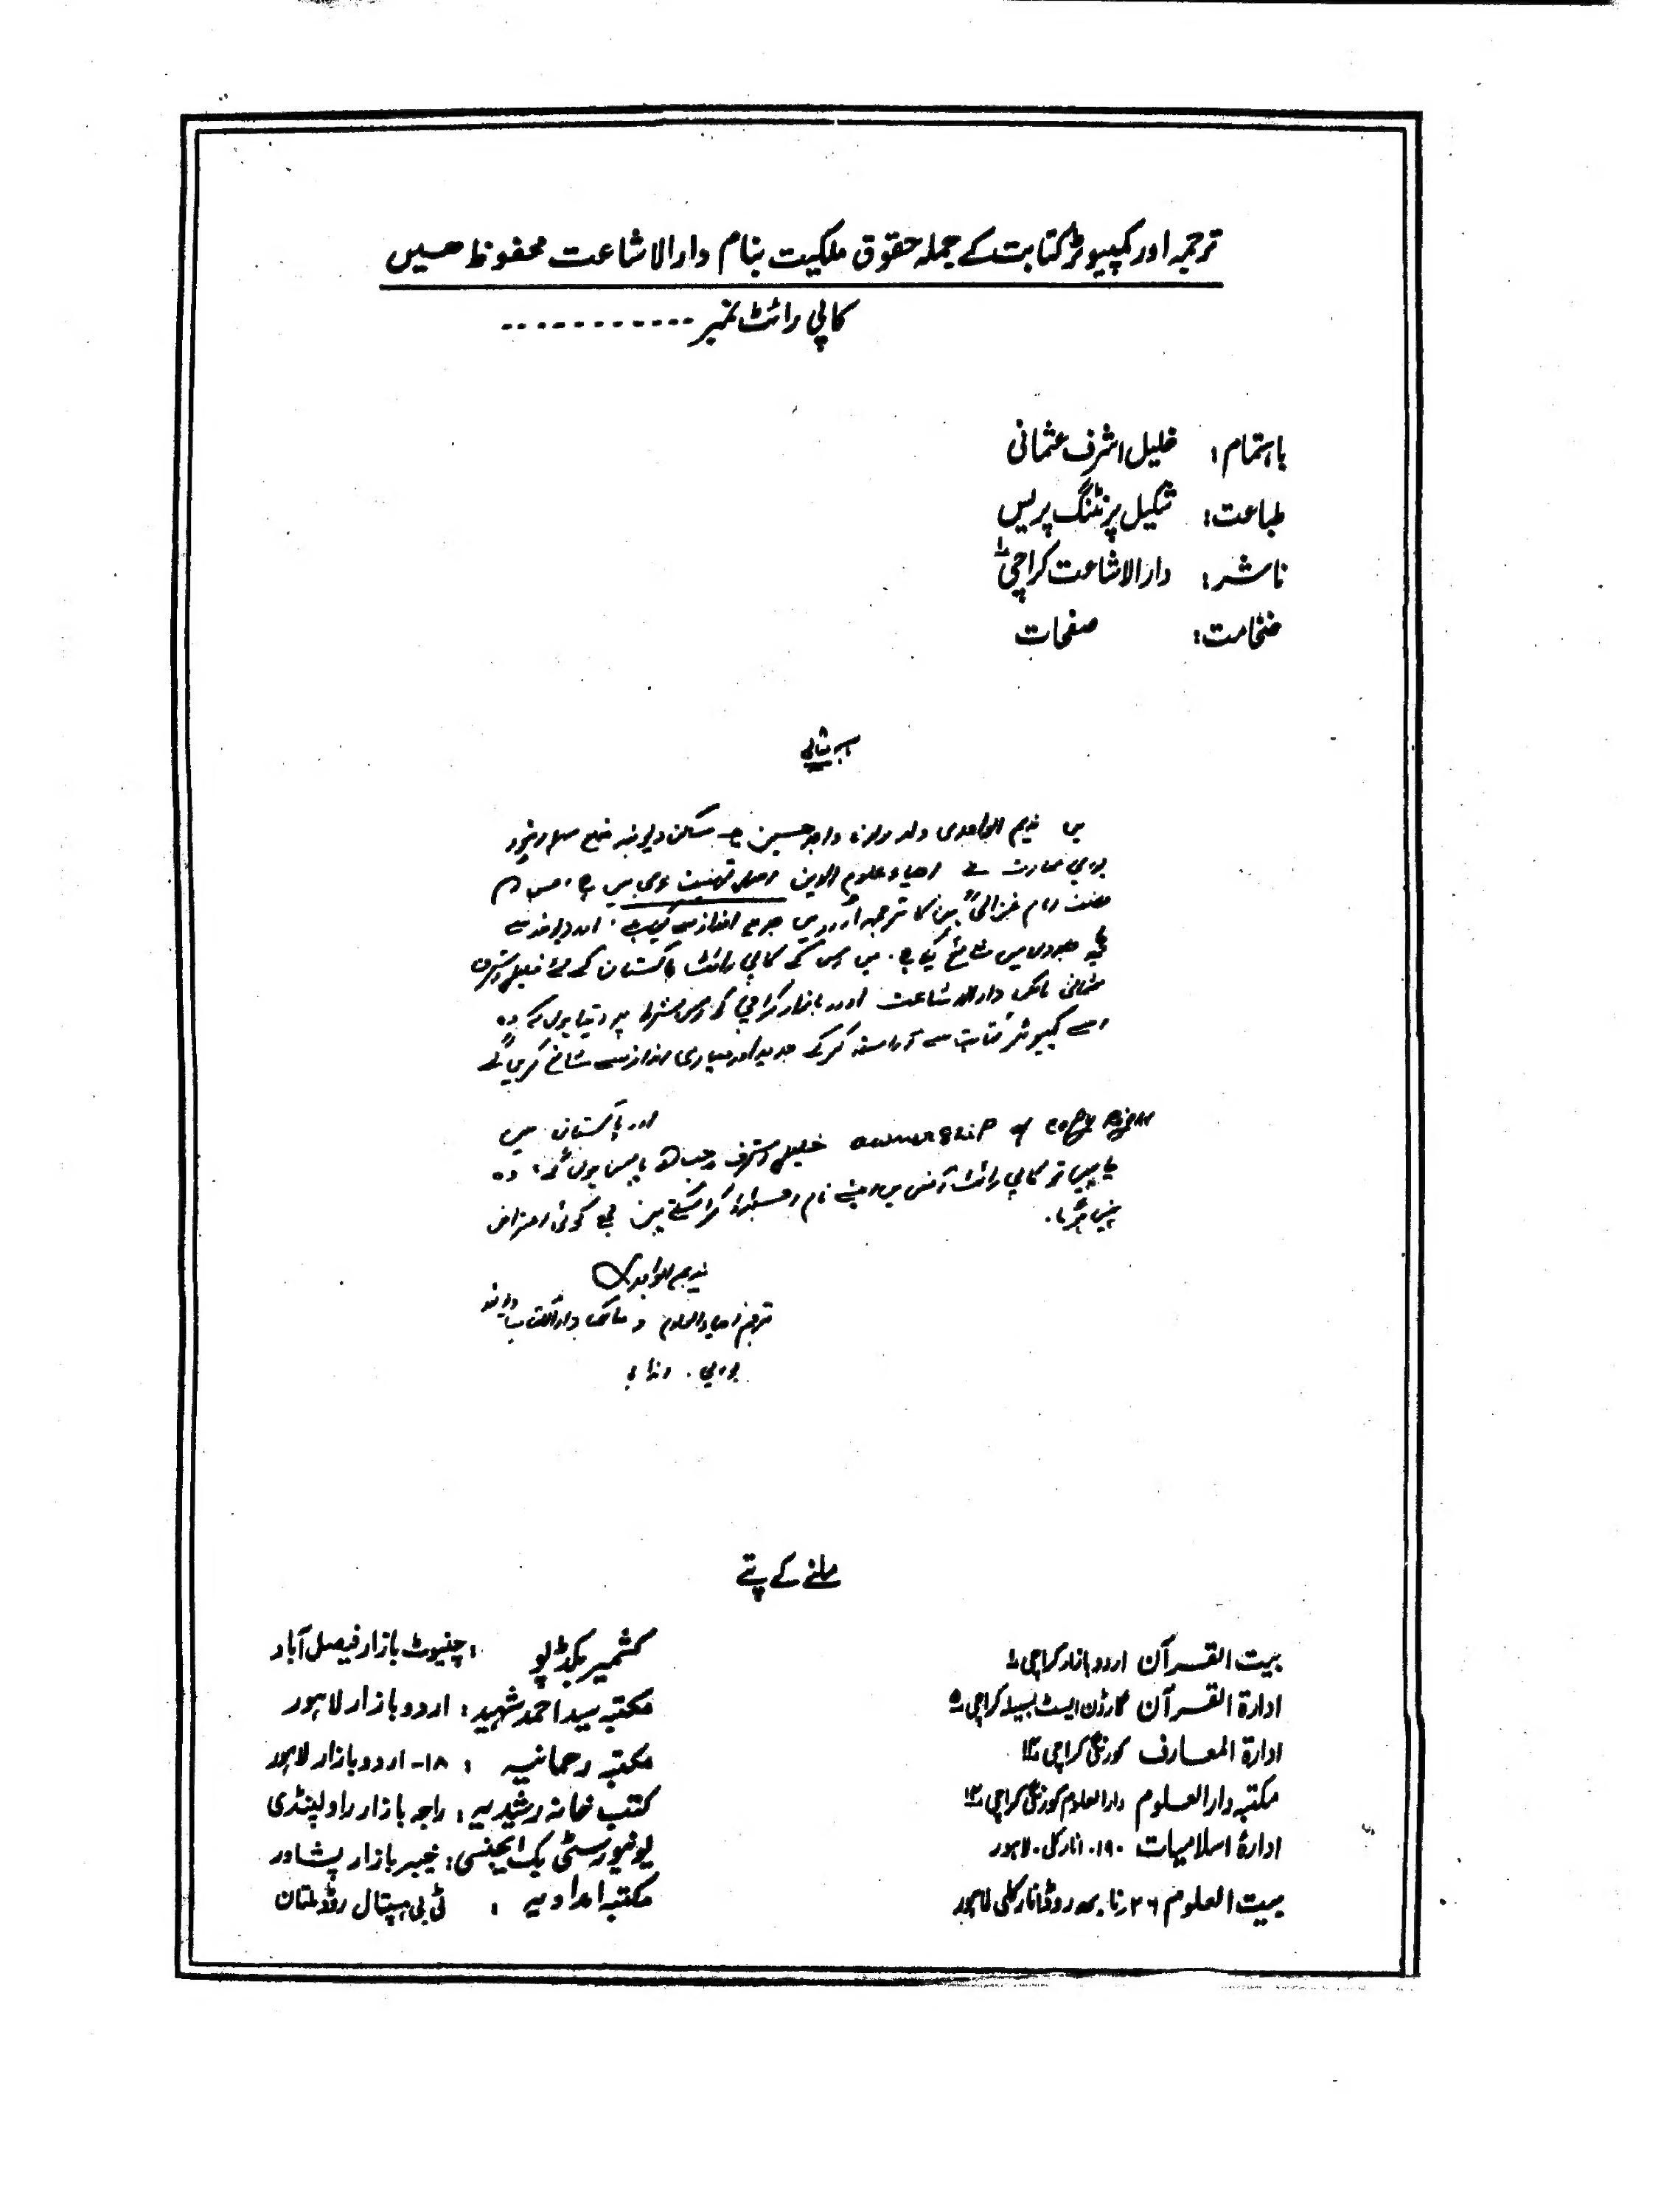 ترجمہ اور کمپیوٹر کتابت کے جملہ حقوق ملکیت بنام دارالاشاعت محفوظ ھیں
کاپی رائٹ نمبر -----------
باہتمام: خلیل اشرف عثمانی
طباعت: شکیل پرنٹنگ پریس
ناشر: دارالاشاعت کراچی ۱
ضخامت: صفحات
میں ندیم الواجدی ولد مولانا واجد حسین ساکن دیوبند ضلع سہارنپور
یو پی بھارت نے احیاء علوم الدین عربی میں ہے
مصنف امام غزالیؒ ہیں کا ترجمہ اردو میں انداز سے کیا ہے اور دیوبند سے
میں شائع کیا ہے۔ میں اس کے کاپی رائٹ پاکستان کے لئے خلیل اشرف
عثمانی مالک دارالاشاعت اردو بازار کراچی کو اس شرط پر دیتا ہوں کہ وہ
اسے کمپیوٹر کتابت سے آراستہ کرکے جدید اور معیاری انداز سے شائع کریں گے
اور پاکستان میں
ownership of copy Right خلیل اشرف صاحب کے پاس ہوں گے، وہ
چاہیں تو کاپی رائٹ آفس میں اپنے نام رجسٹرڈ کرا سکتے ہیں مجھے کوئی اعتراض
نہیں ہوگا۔
ندیم الواجدی
مترجم احیاء العلوم و مالک دارالکتاب دیوبند
یو پی۔ انڈیا
ملنے کے پتے
بیت القرآن اردو بازار کراچی ۱
ادارۃ القرآن گارڈن ایسٹ لسبیلہ کراچی ۵
ادارۃ المعارف کورنگی کراچی ۱۴
مکتبہ دارالعلوم دارالعلوم کورنگی کراچی ۱۴
ادارۂ اسلامیات ۱۹۰۔ انارکلی۔ لاہور
بیت العلوم ۲۶ نابھہ روڈ انارکلی لاہور
کشمیر بکڈپو : چنیوٹ بازار فیصل آباد
مکتبہ سید احمد شہید : اردو بازار لاہور
مکتبہ رحمانیہ : ۱۸۔ اردو بازار لاہور
کتب خانہ رشیدیہ : راجہ بازار راولپنڈی
یونیورسٹی بک ایجنسی : خیبر بازار پشاور
مکتبہ امدادیہ : ٹی بی ہسپتال روڈ ملتان